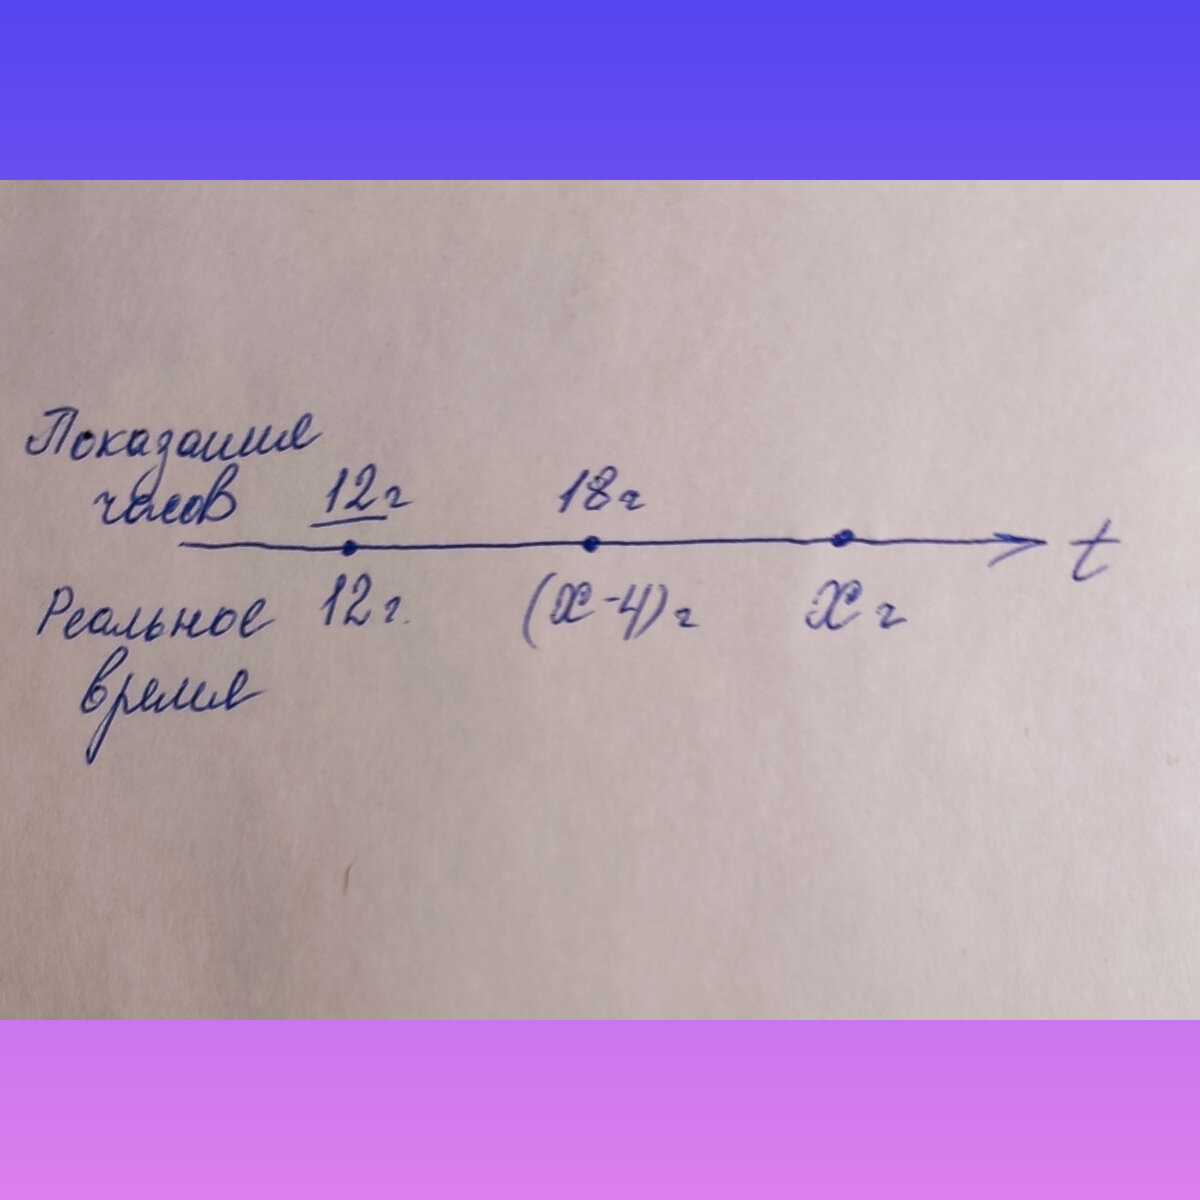 Показания
часов 12ч 18ч
t
Реальное 12ч. (x-4)ч xч
время